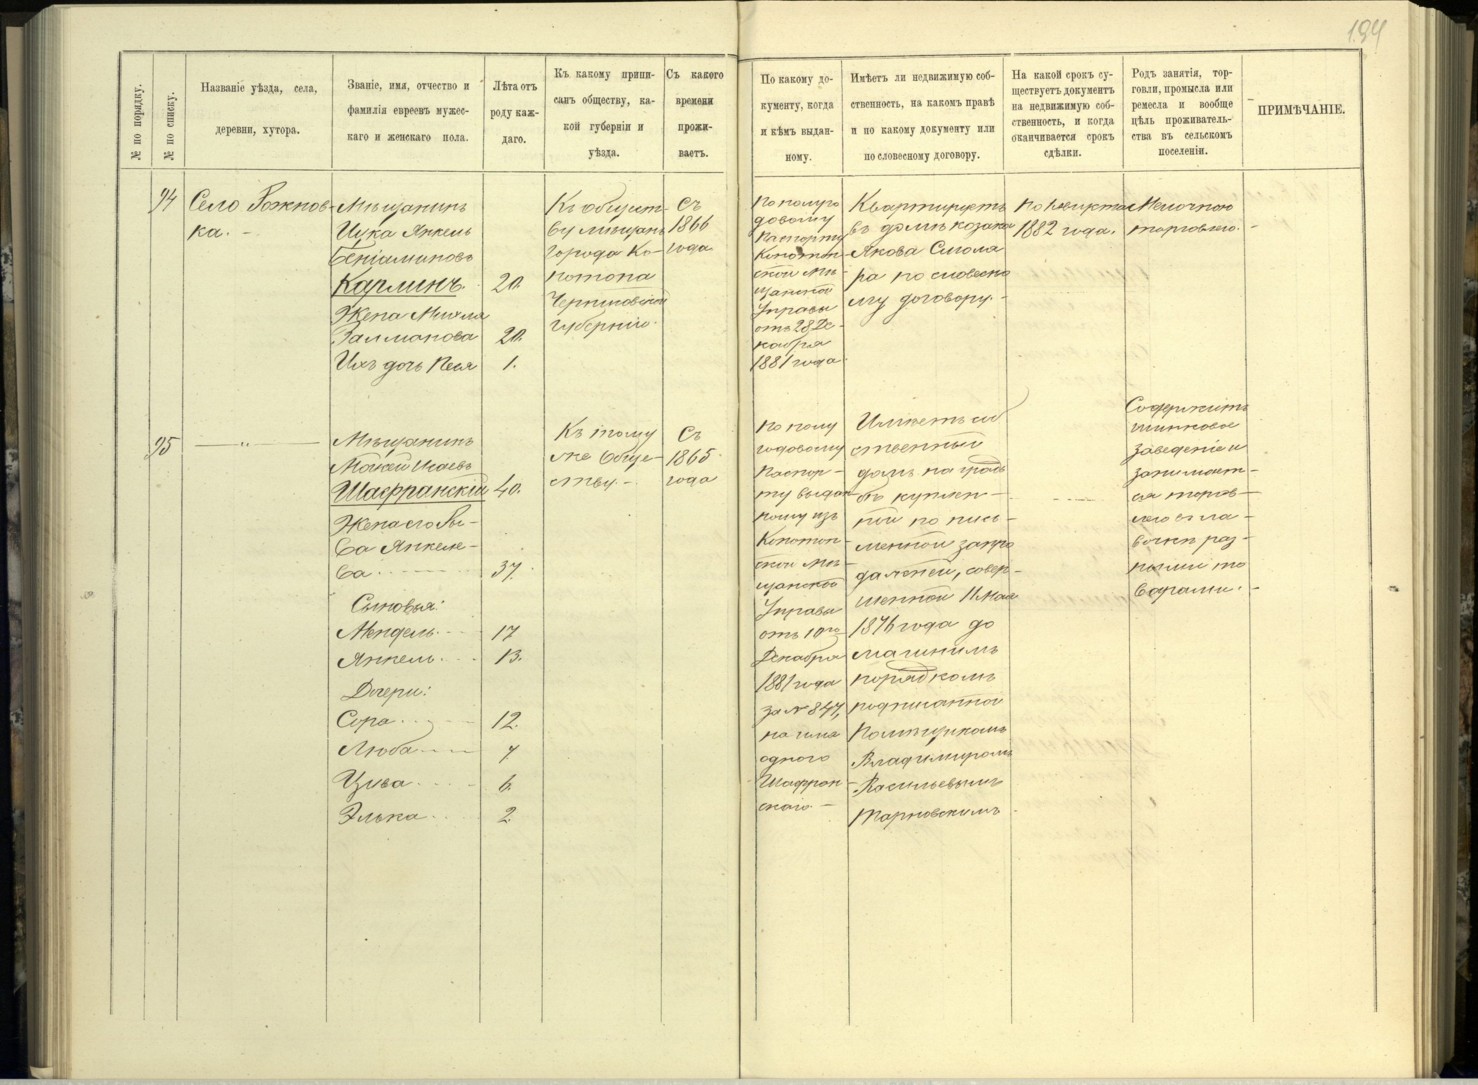 194
№ по порядку.
№ по списку.
Названіе уѣзда, села,
деревни, хутора.
Званіе, имя, отчество и
фамилія евреевъ мужес-
каго и женскаго пола.
Лѣта отъ
роду каж-
даго.
Къ какому припи-
санъ обществу, ка-
кой губерніи и
уѣзда.
Съ какого
времени
прожи-
ваетъ.
По какому до-
кументу, когда
и кѣмъ выдан-
ному.
Имѣетъ ли недвижимую соб-
ственность, на какомъ правѣ
и по какому документу или
по словесному договору.
На какой срокъ су-
ществуетъ документъ
на недвижимую соб-
ственность, и когда
оканчивается срокъ
сдѣлки.
Родъ занятія, тор-
говли, промысла или
ремесла и вообще
цѣль проживатель-
ства въ сельскомъ
поселеніи.
ПРИМѢЧАНІЕ.
94
Село Рожнов-
ка. -
Мѣщанинъ
Ицка Янкель
Беніаминовъ
Карлинъ 20.
Жена Михля
Залманова 20.
Ихъ дочь Песя 1.
Къ общест-
ву мѣщанъ
города Ко-
нотопа
Черниговской
губерніи.
Съ
1866
года
По полуго
довому
Паспорту
Конотоп-
ской мѣ-
щанской
Управы
отъ 28 Де-
кабря
1881 года
Квартируетъ
въ домѣ козака
Якова Смоля
ра по словесно
му договору. -
1882 года.
Мелочною
торговлею. -
95
— „ —
Мѣщанинъ
Мойсей Исаевъ
Шафранскій 40.
Жена его Ри-
ва Янкеле-
ва 37.
Сыновья:
Мендель 17
Янкель 13.
Дочери:
Сора 12.
Люба 7
Цива 6.
Элька 2.
Къ тому
же Обще-
ству. -
Съ
1865
года
По полу
годовому
Паспор-
ту выдан
ному изъ
Конотоп-
ской мѣ-
щанской
Управы
отъ 10го
Декабря
1881 года
за № 847,
на имя
одного
Шафран-
скаго -
Имѣетъ соб
ственный
домъ на
купчей-
по пись-
менной запро
дажней, совер-
шенной 11 мая
1876 года до
машнимъ
порядкомъ
подписанной
Помѣщикомъ
Владиміромъ
Васильевымъ
Тарновскимъ
Содержитъ
шинковое
заведеніе и
занимает-
ся торгов-
лею съ ла-
вочки раз-
ными то
варами. -